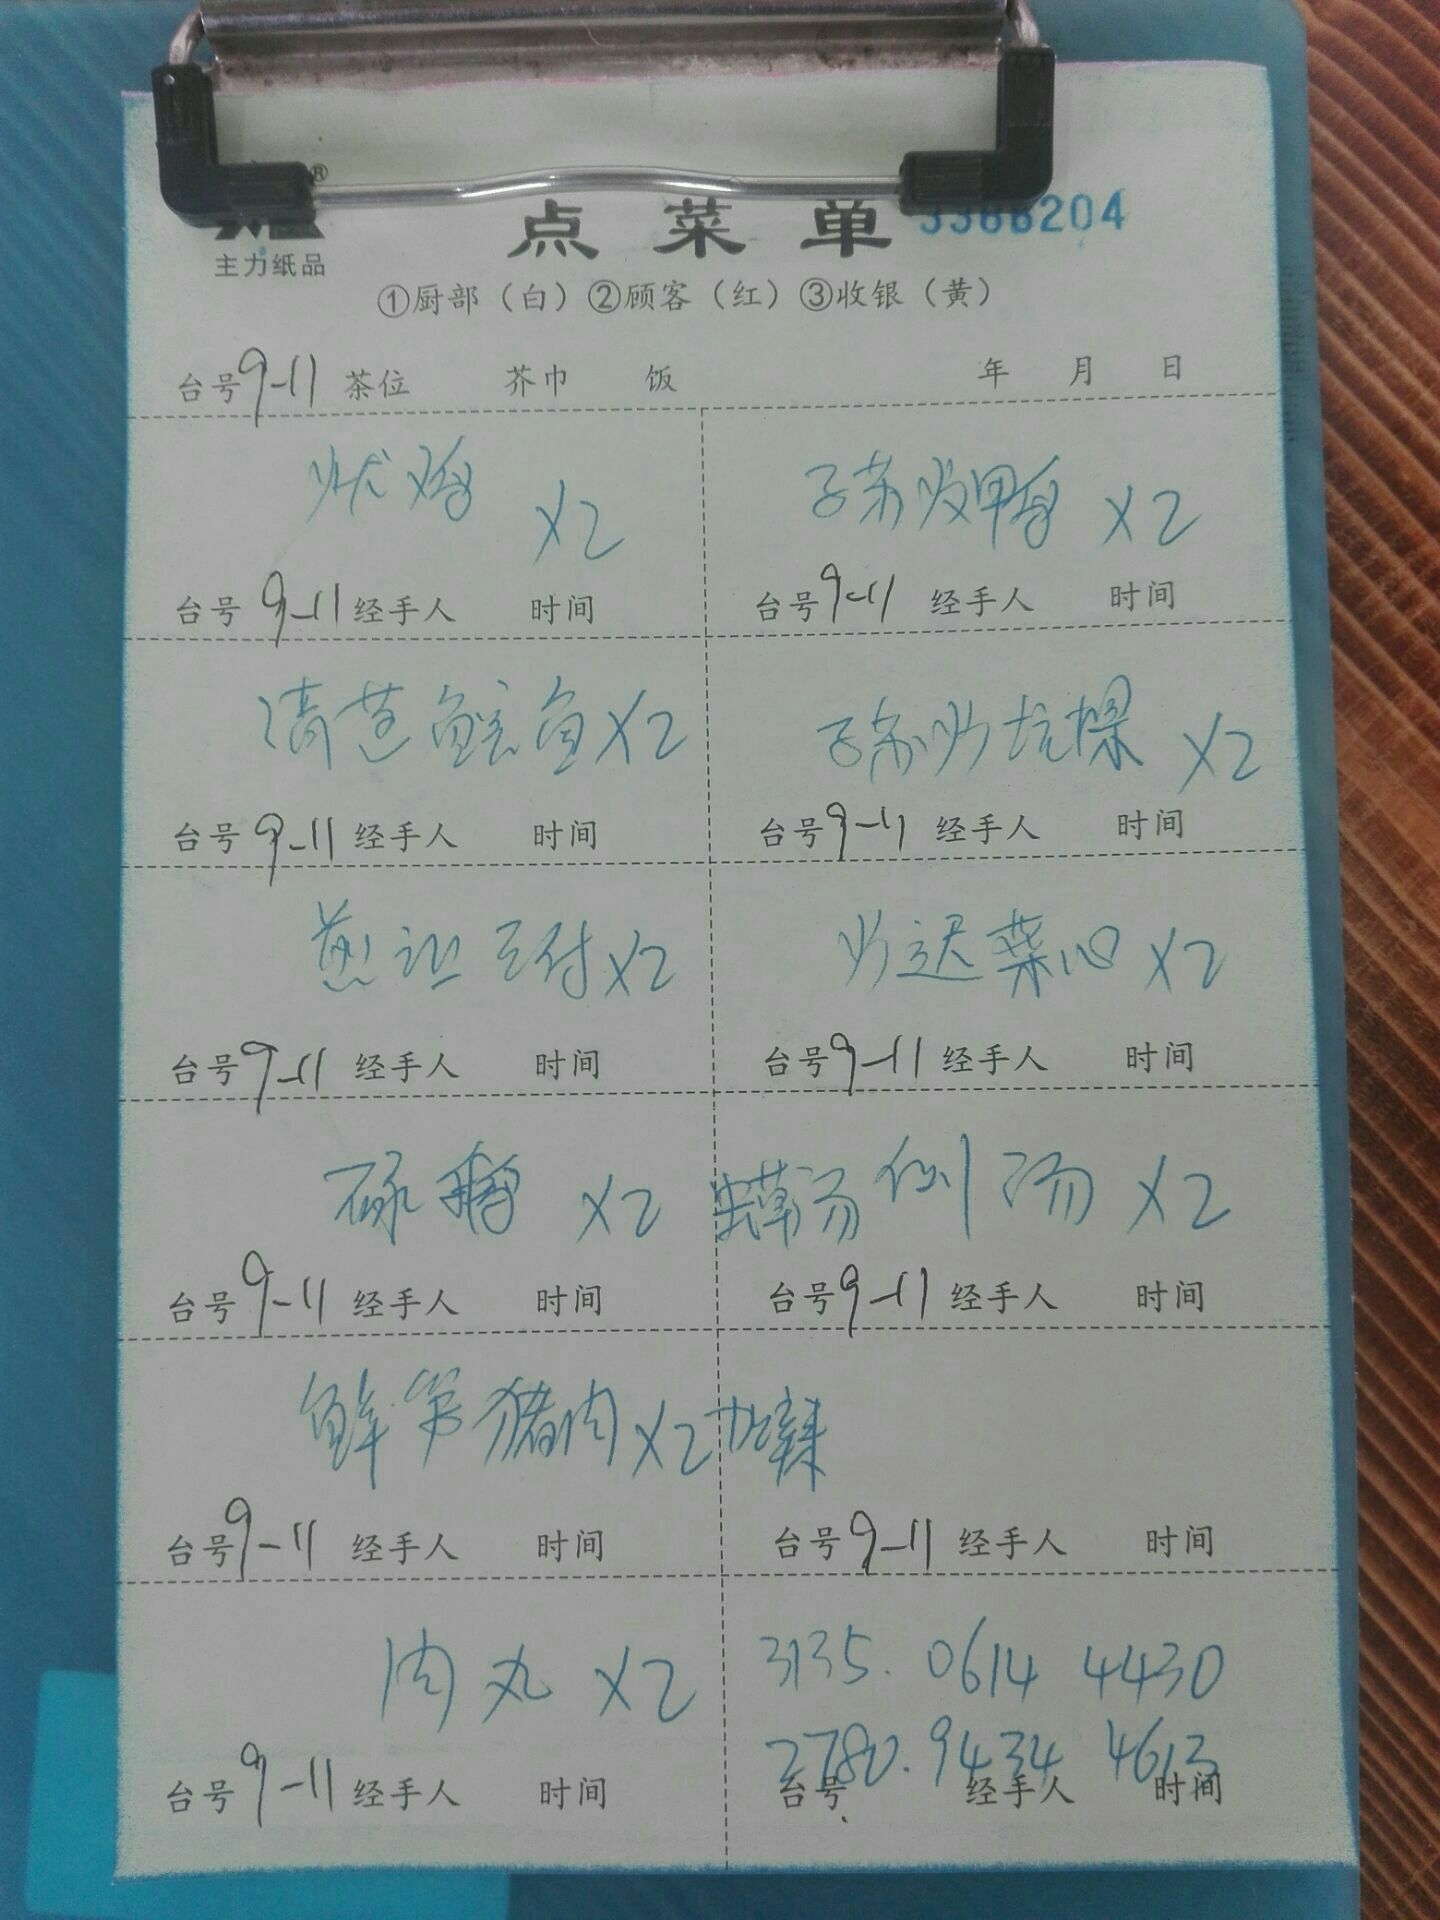 ®
主力纸品
点菜单 3388204
①厨部（白）②顾客（红）③收银（黄）
台号 9-11 茶位 芥巾 饭 年 月 日
鸡 X2
子苏炒鸭 X2
台号 9-11 经手人 时间
台号 9-11 经手人 时间
清蒸 鱼 X2
子苏炒 X2
台号 9-11 经手人 时间
台号 9-11 经手人 时间
煎让豆付 X2
炒迟菜心 X2
台号 9-11 经手人 时间
台号 9-11 经手人 时间
碌鹅 X2
汤 X2
台号 9-11 经手人 时间
台号 9-11 经手人 时间
鲜笋猪肉 X2 加辣
台号 9-11 经手人 时间
台号 9-11 经手人 时间
肉丸 X2
3135. 0614 4430
2780. 9434 4613
台号 9-11 经手人 时间
台号 经手人 时间